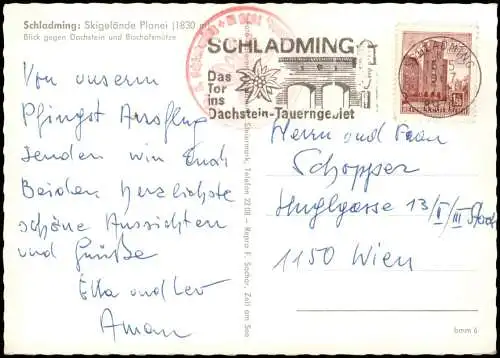 Schladming: Skigelände Planei (1830 m)
Blick gegen Dachstein und Bischofsmütze
Von unserm
Pfingst Ausflug
senden wir Euch
Beiden herzlichste
schöne Aussichten
und Grüße
Ella und Leo
Aman
SCHLADMING
Das
Tor
ins
Dachstein-Tauerngebiet
SCHLADMING
Steiermark, Telefon 22 08 - Repro F. Sochor, Zell am See
Herrn und Frau
Schopper
Huglgasse 13/II/III Stock
1150 Wien
bmm 6